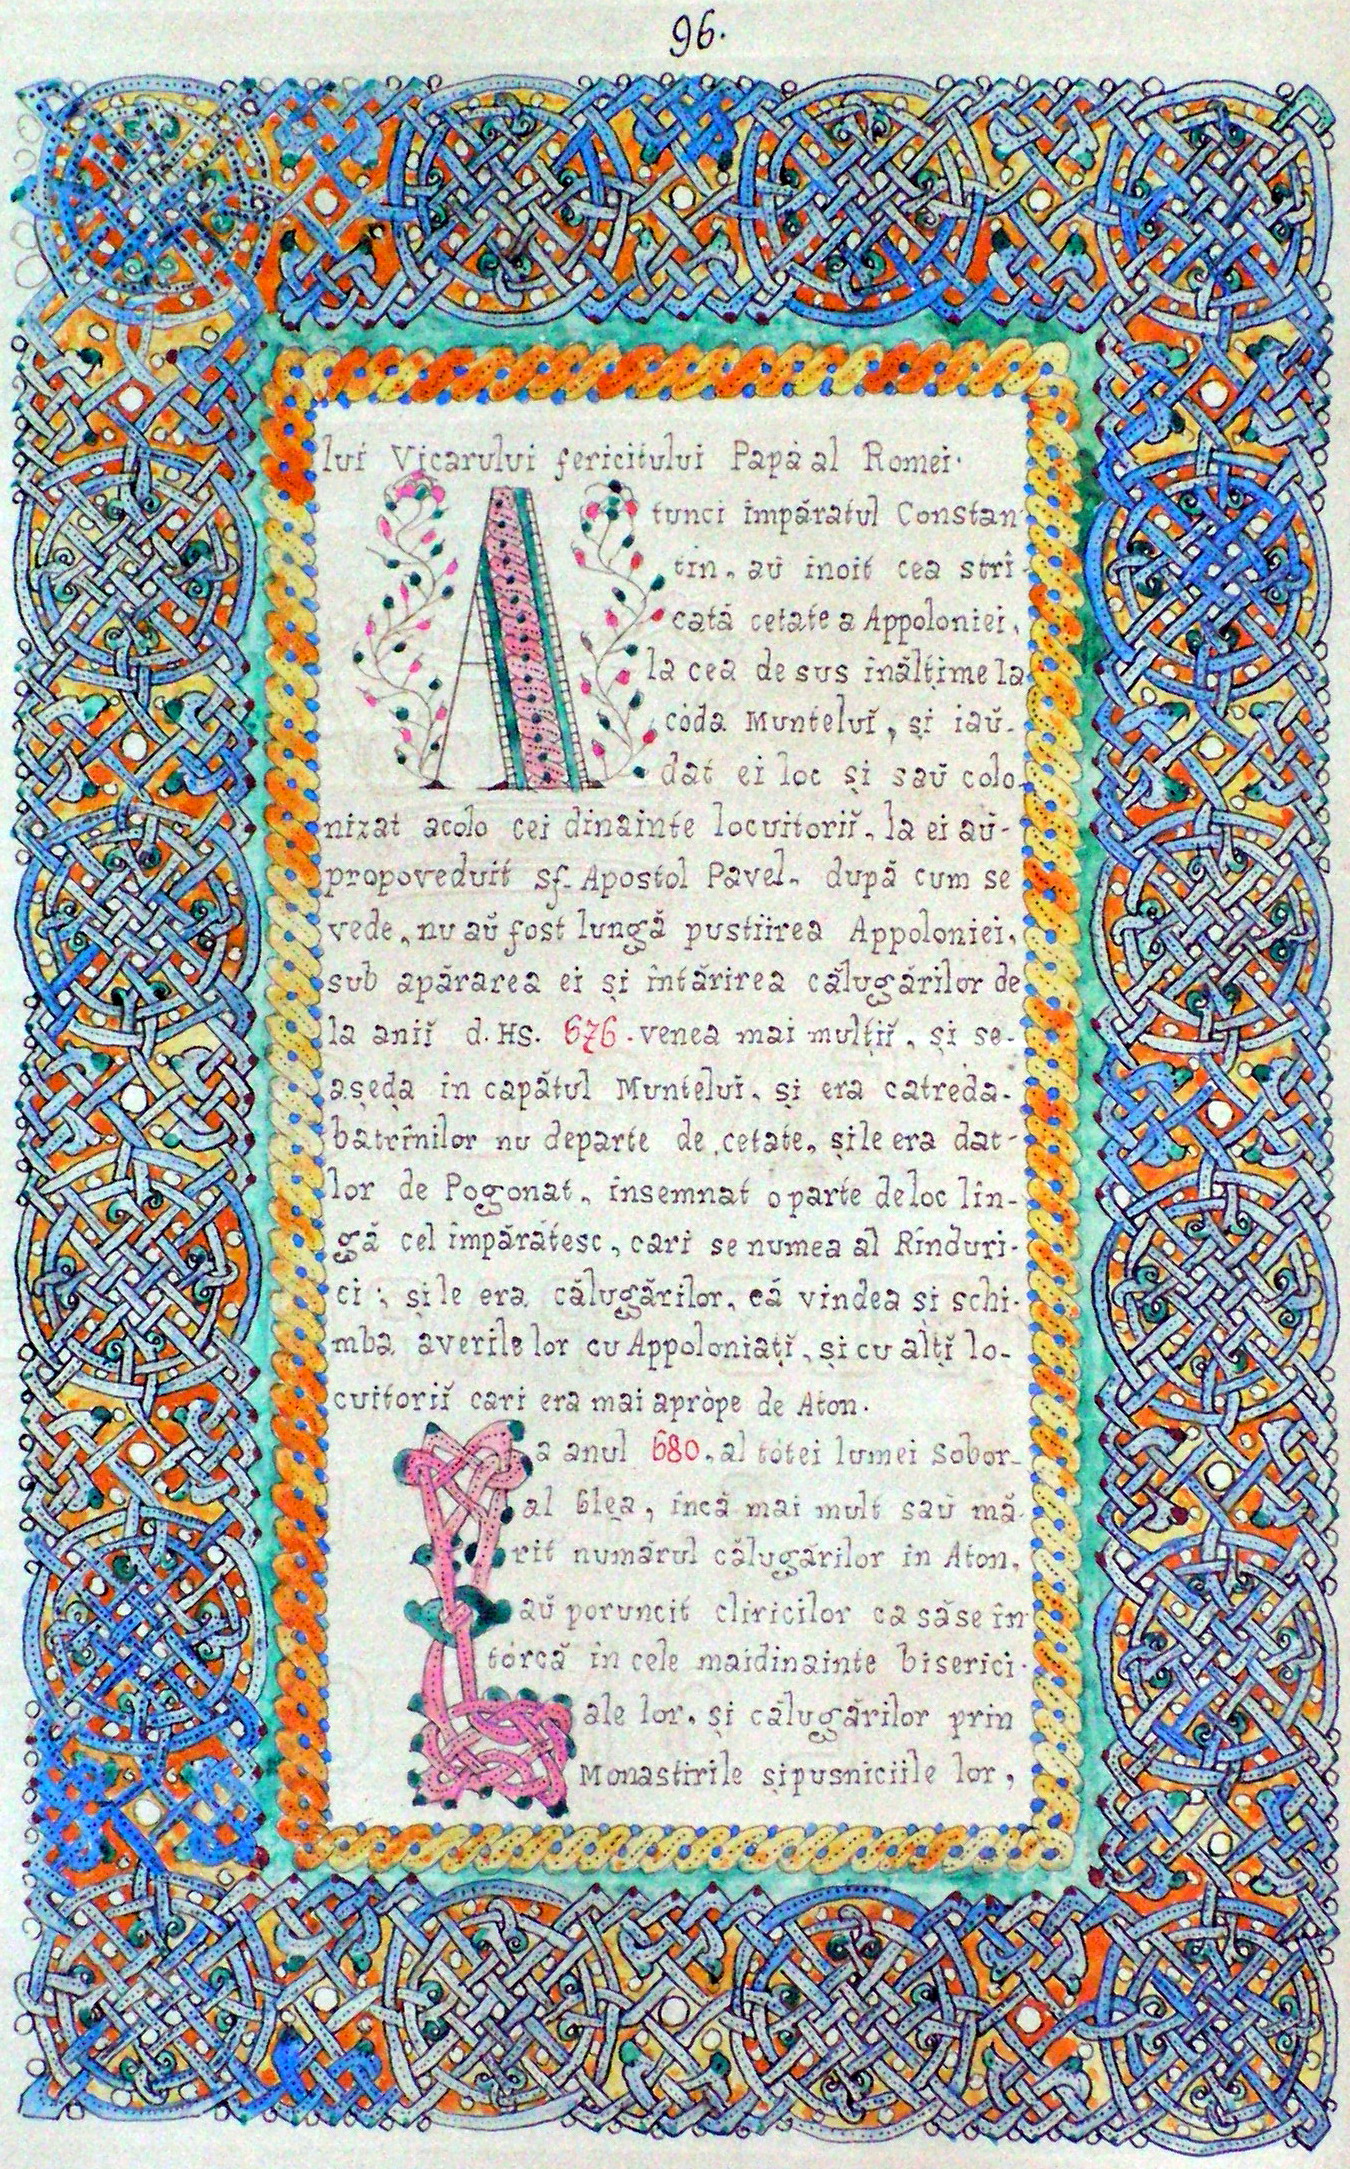 96.
lui Vicarului fericitului Papa al Romei.
Atunci împăratul Constan
tin, aŭ inoit cea stri-
cată cetate a Appoloniei,
la cea de sus înălțime la
códa Muntelui, și iaŭ-
dat ei loc și saŭ colo-
nizat acolo cei dinainte locuitoriĭ, la ei aŭ-
propoveduit sf. Apostol Pavel, după cum se
vede, nu aŭ fost lungă pustiirea Appoloniei,
sub apărarea ei și întărirea călugărilor de
la aniĭ d. Hs. 676. venea mai mulțiĭ, și se-
așeḑa în capătul Muntelui, și era catreda-
batrînilor nu departe de cetate, și le era dat-
lor de Pogonat, însemnat o parte de loc lîn-
gă cel împărătesc, cari se numea al Rînduri-
ci; și le era călugărilor, că vindea și schi-
mba averile lor cu Appoloniați, și cu alți lo-
cuitoriĭ cari era mai apròpe de Aton.
La anul 680, al tótei lumei Sobor-
al 6lea, încă mai mult saŭ mă-
rit numărul călugărilor în Aton,
aŭ poruncit cliricilor ca să se în
tórcă în cele mai dinainte biserici-
ale lor, și călugărilor prin
Monastirile și pusniciile lor,